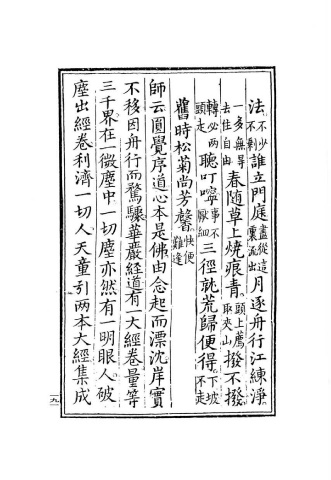 法不少不剩誰立門庭盡從這裏流出月逐舟行江練淨
一多無㝵去住自由春隨草上燒痕青頭上薦取夾山撥不撥
轉必兩頭走聽叮嚀事不厭細三徑就荒歸便得下坡不走
舊時松菊尚芳馨快便難逢
師云圓覺序道心本是佛由念起而漂沈岸實
不移因舟行而驚驟華嚴經道有一大經卷量等
三千界在一微塵中一切塵亦然有一明眼人破
塵出經卷利濟一切人天童引兩本大經集成